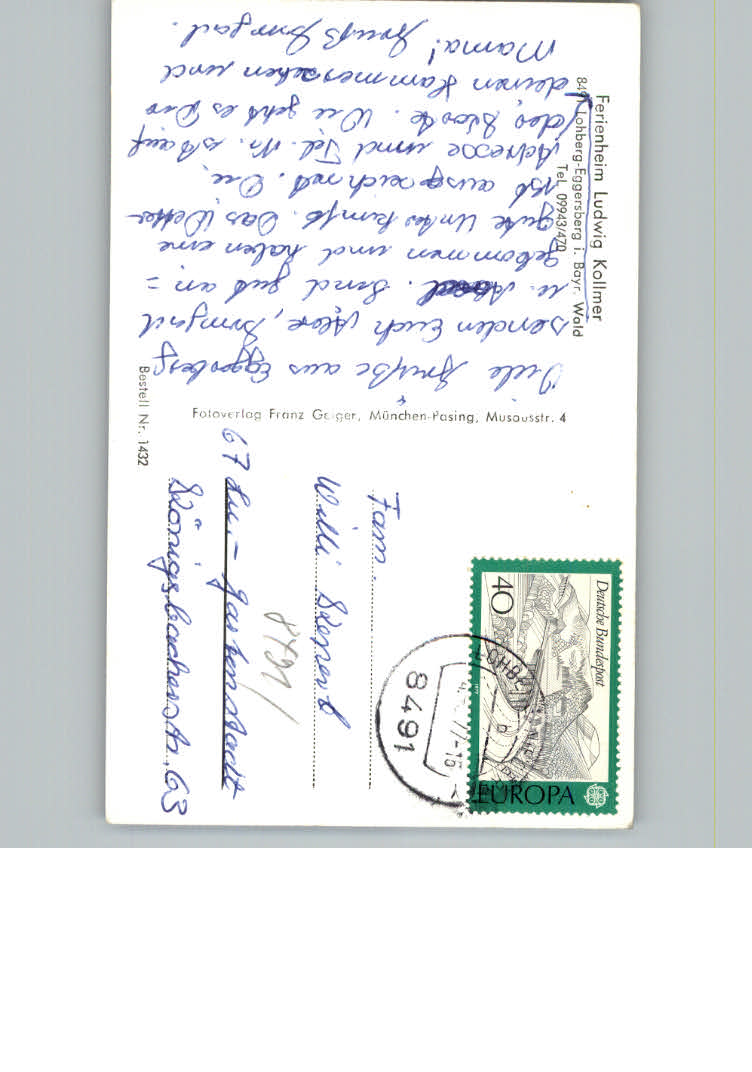 Ferienheim Ludwig Kollmer
8491 Lohberg-Eggersberg i. Bayr. Wald
Tel. 09943/470
Viele Grüße aus Eggersberg
senden Euch Alex, Irmgard
u. Sind gut an=
gekommen und haben eine
gute Unterkunft. Das Wetter
ist ausgezeichnet. Die
Adresse und Tel. Nr. ist auf
der Karte. Wie geht es Dir
deinen Kammerzehen und
Mama! Gruß Irmgard.
Bestell Nr. 1432
Fotoverlag Franz Geiger, München-Pasing, Musäusstr. 4
Deutsche Bundespost
40
EUROPA
8491
Fam.
Willi
67 Lu.- Gartenstadt
Königsbacherstr. 63
8491